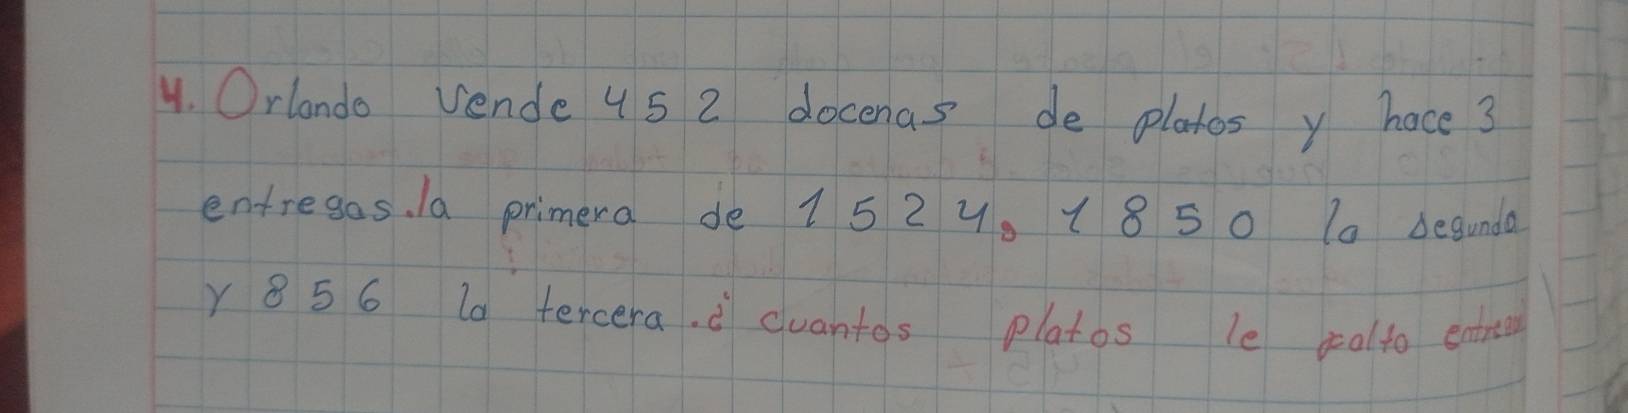 4. Orlando vende 452 docenas de platos y hace 3
entregas. la primera de 1524, 1850 la segunda
Y 856 la tercera. ¿ cuantos platos le falto